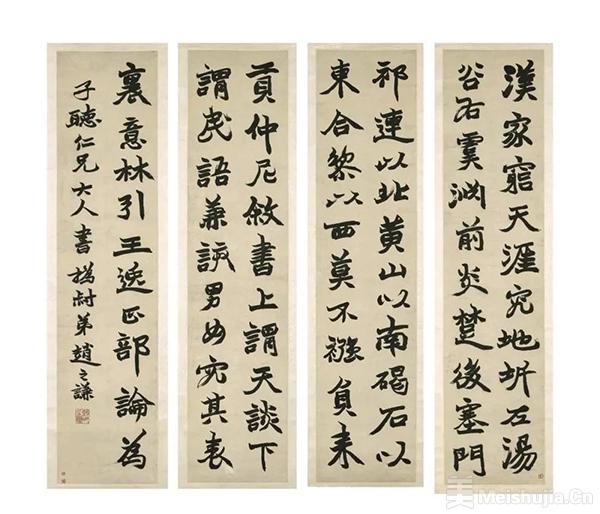 漢家窮天涯究地圻左湯
谷右虞淵前炎楚後塞門
祁連以北黃山以南碣石以
東合黎以西莫不襁負來
貢仲尼敘書上謂天談下
謂民語兼該男女究其表
裏意林引王逸正部論為
子聽仁兄大人書 撝叔弟趙之謙
美 Meishujia.Cn